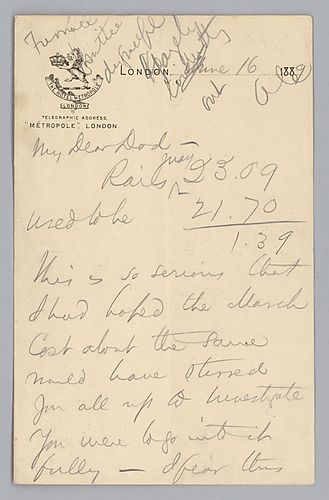 Furnace
LONDON, June 16 1889
THE HOTEL METROPOLE
LONDON
TELEGRAPHIC ADDRESS.
"METROPOLE", LONDON
My Dear Dod —
Rails May 23.09
used to be 21.70
1.39
This is so serious that
I had hoped the March
Cost about the same
would have stirred
you all up to investigate
You were to go into it
fully — I fear this